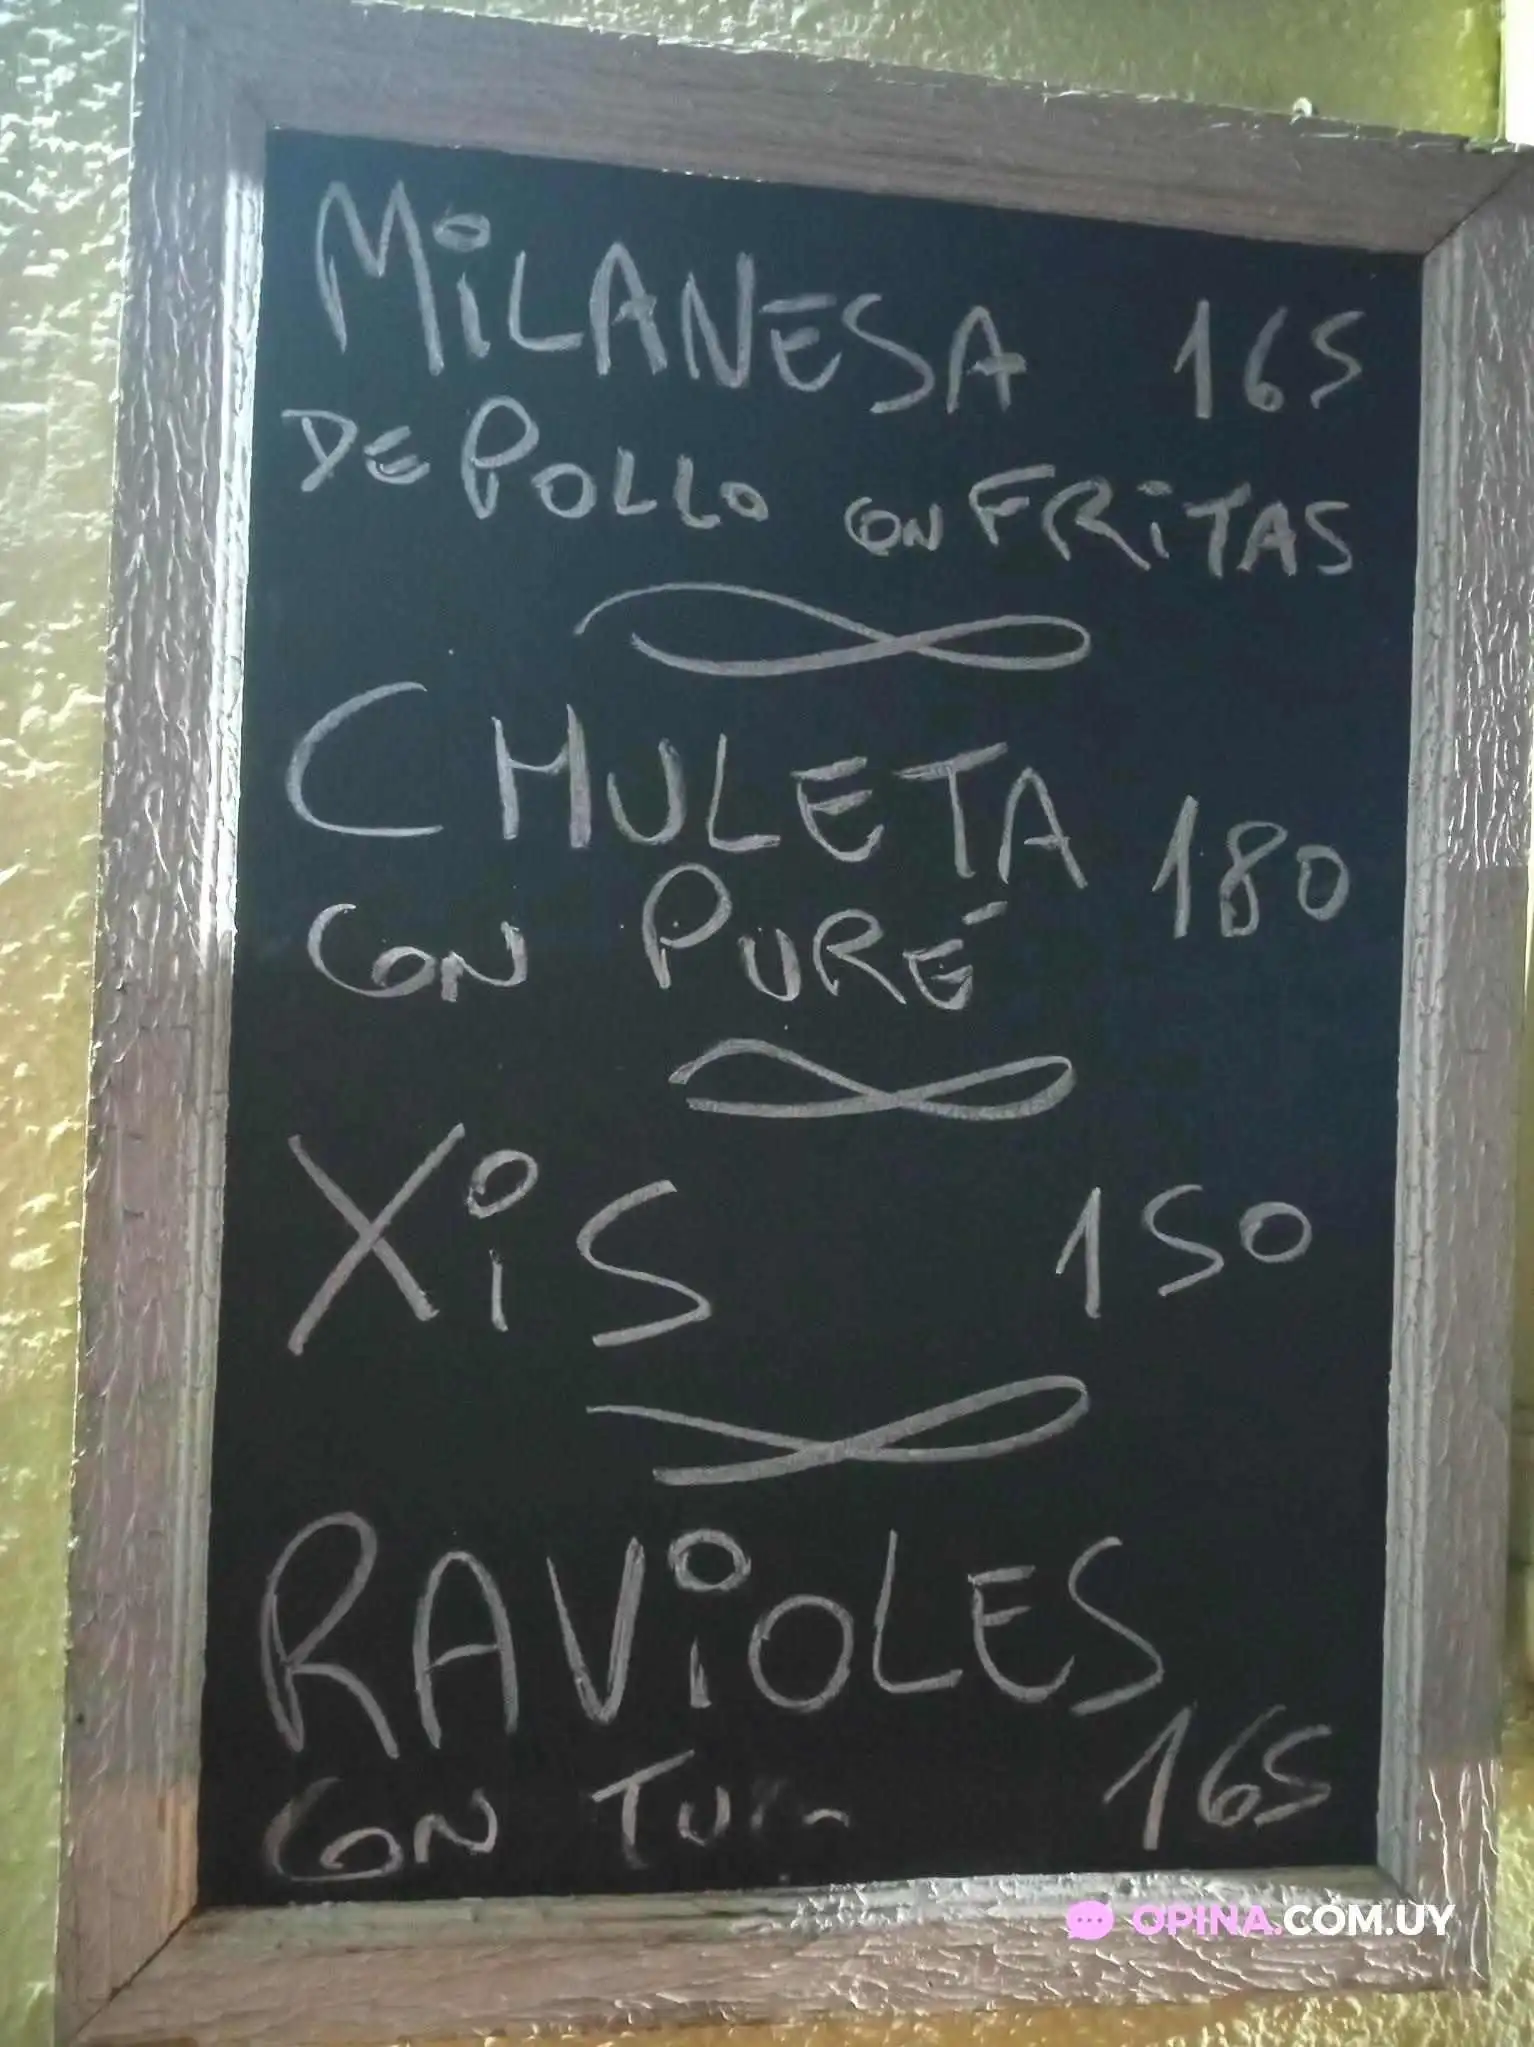 MiLANESA 165
DE POLLO CON FRiTAS
CHULETA 180
CON PURÉ
XiS 150
RAViOLES 165
CON
OPINA.COM.UY